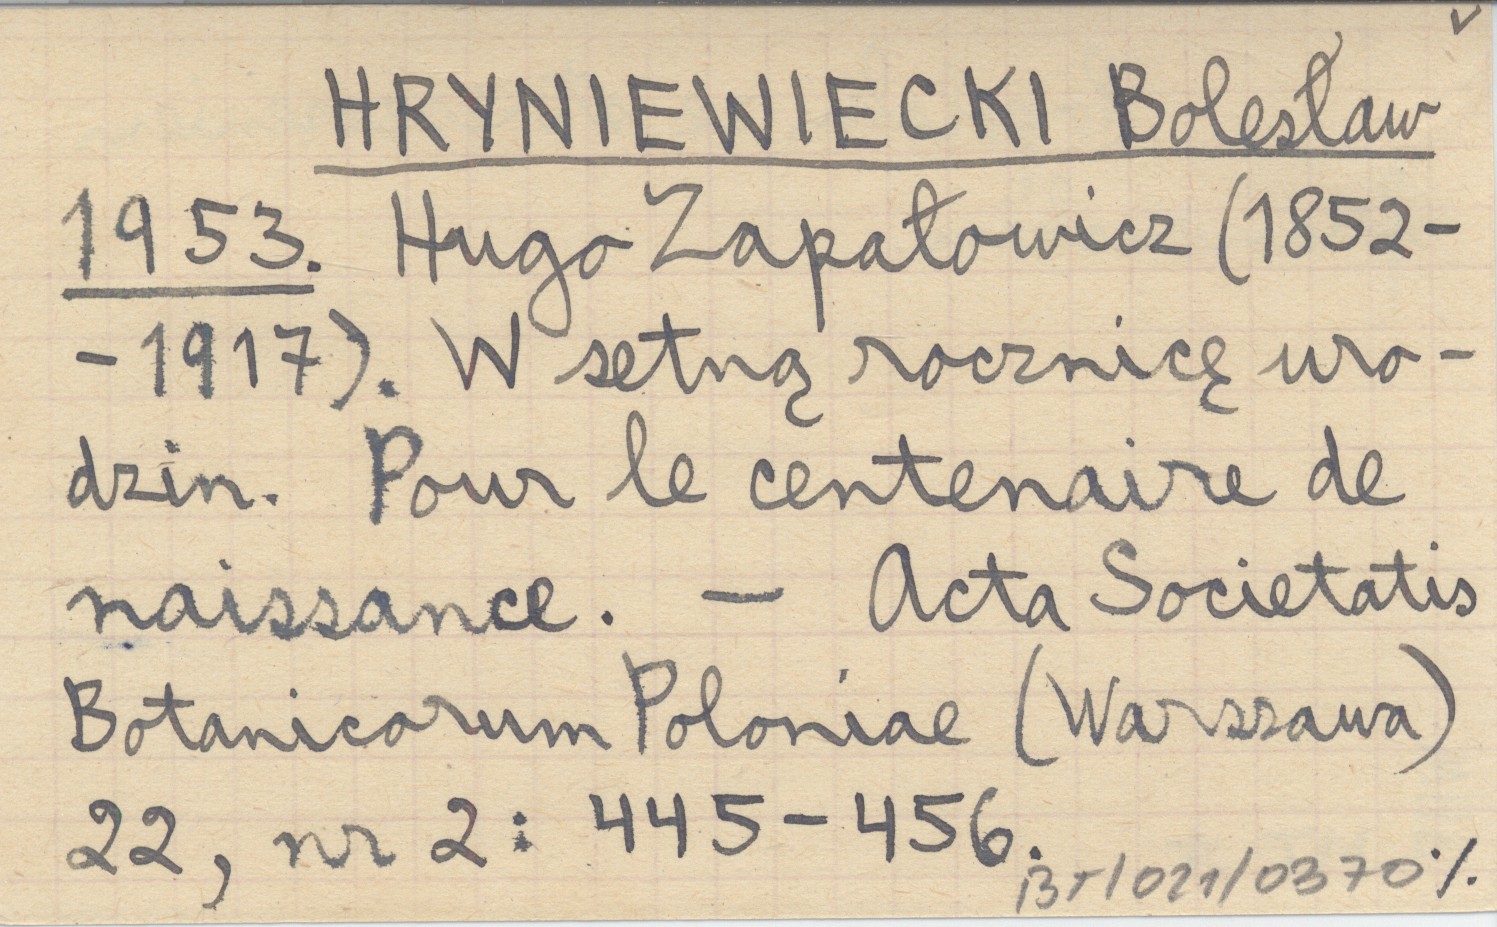 HRYNIEWIECKI Bolesław
1953. Hugo Zapałowicz (1852-
-1917). W setną rocznicę uro-
dzin. Pour le centenaire de
naissance. — Acta Societatis
Botanicorum Poloniae (Warszawa)
22, nr 2: 445-456.
BT/021/0370·/.